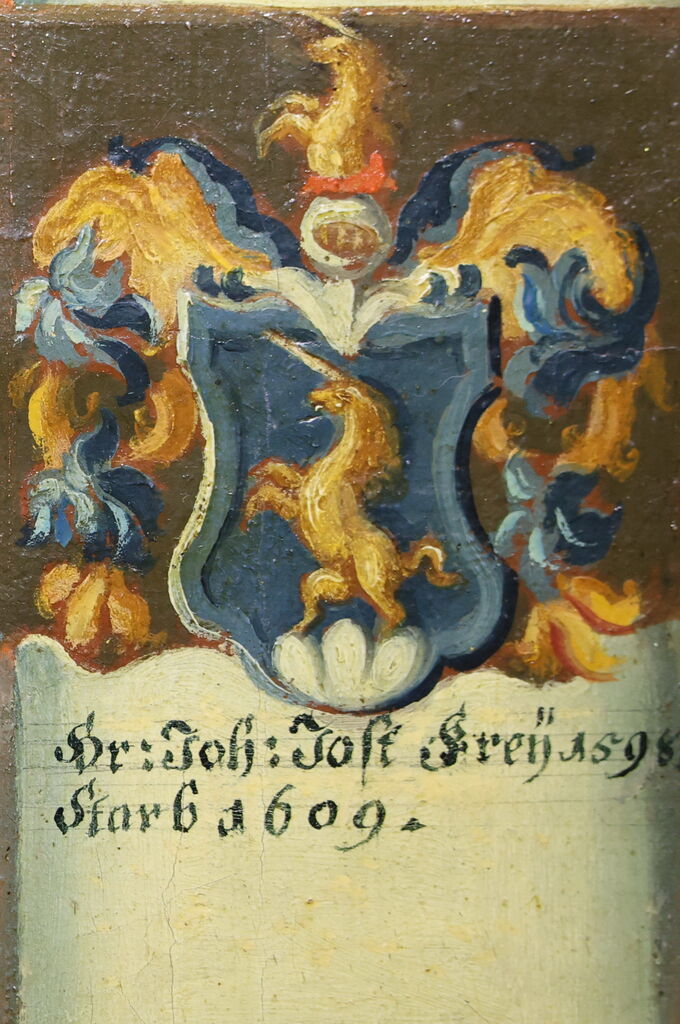 Hr: Joh: Jost Freÿ 1598.
Starb 1609.